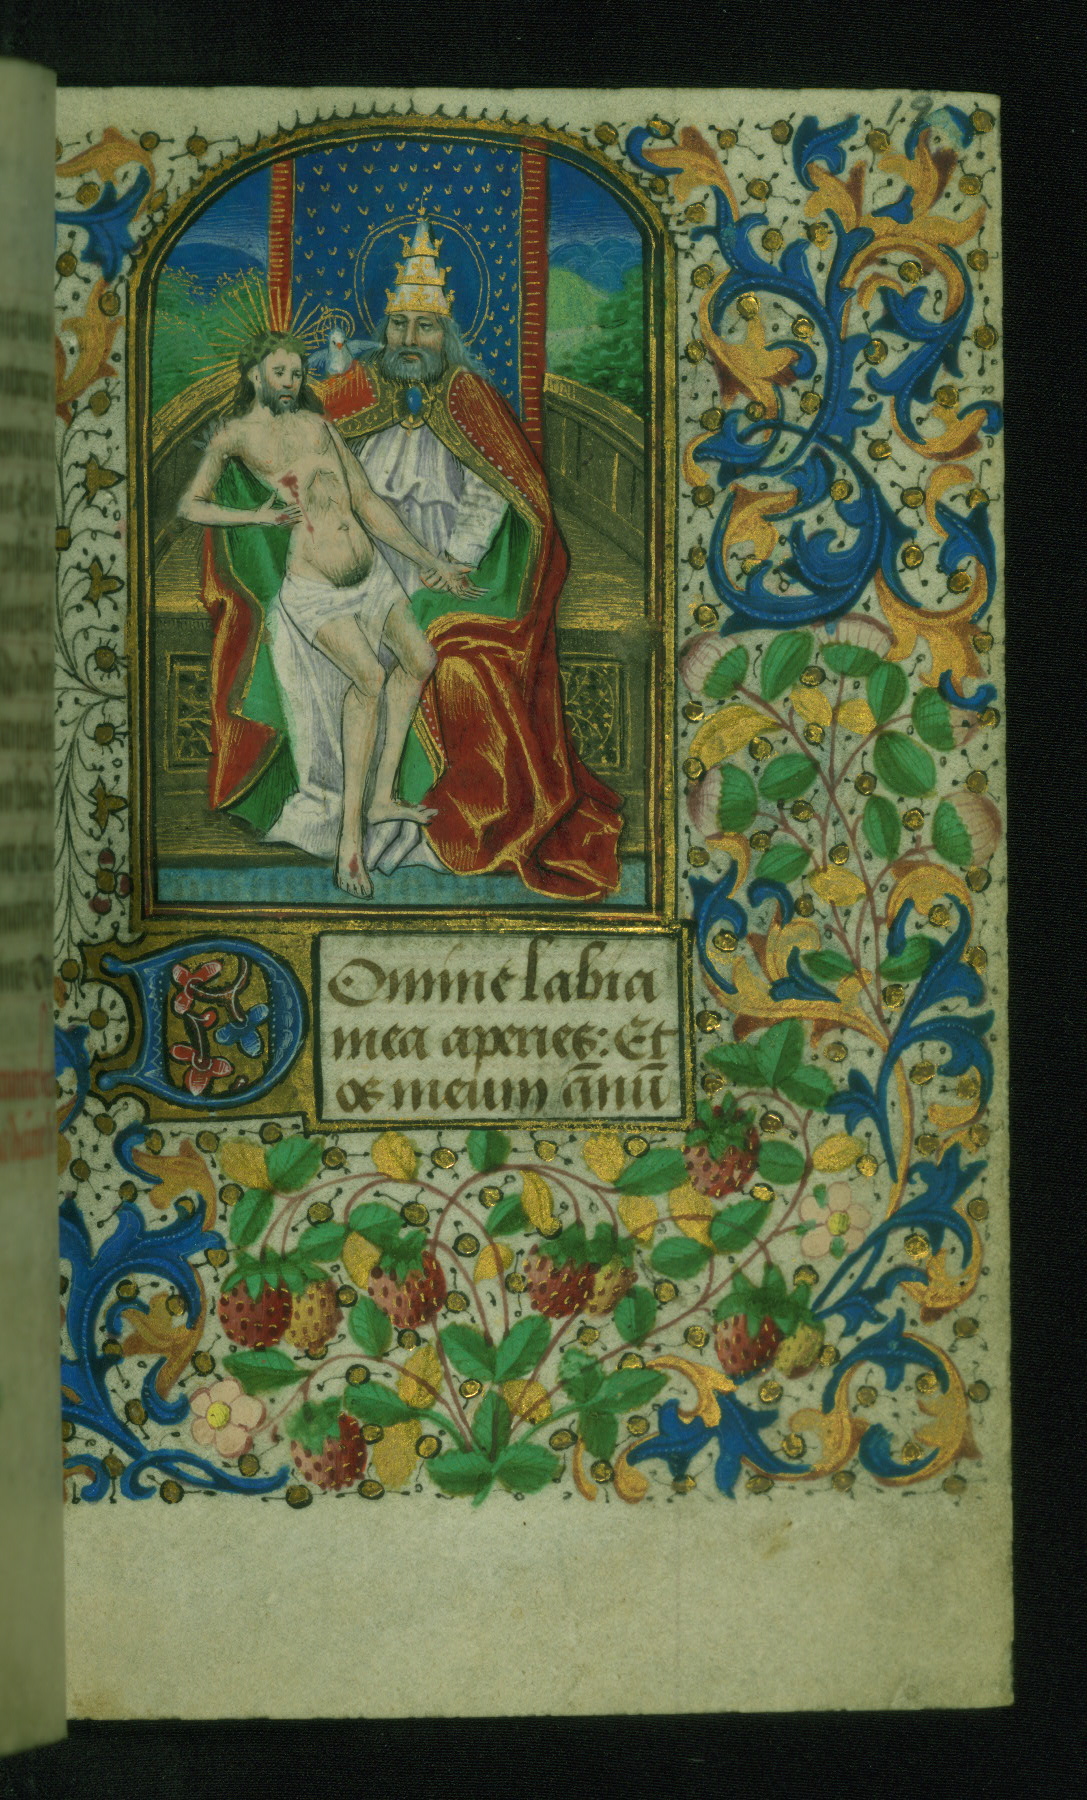 19
Domine labia
mea aperies: Et
os meum ānū